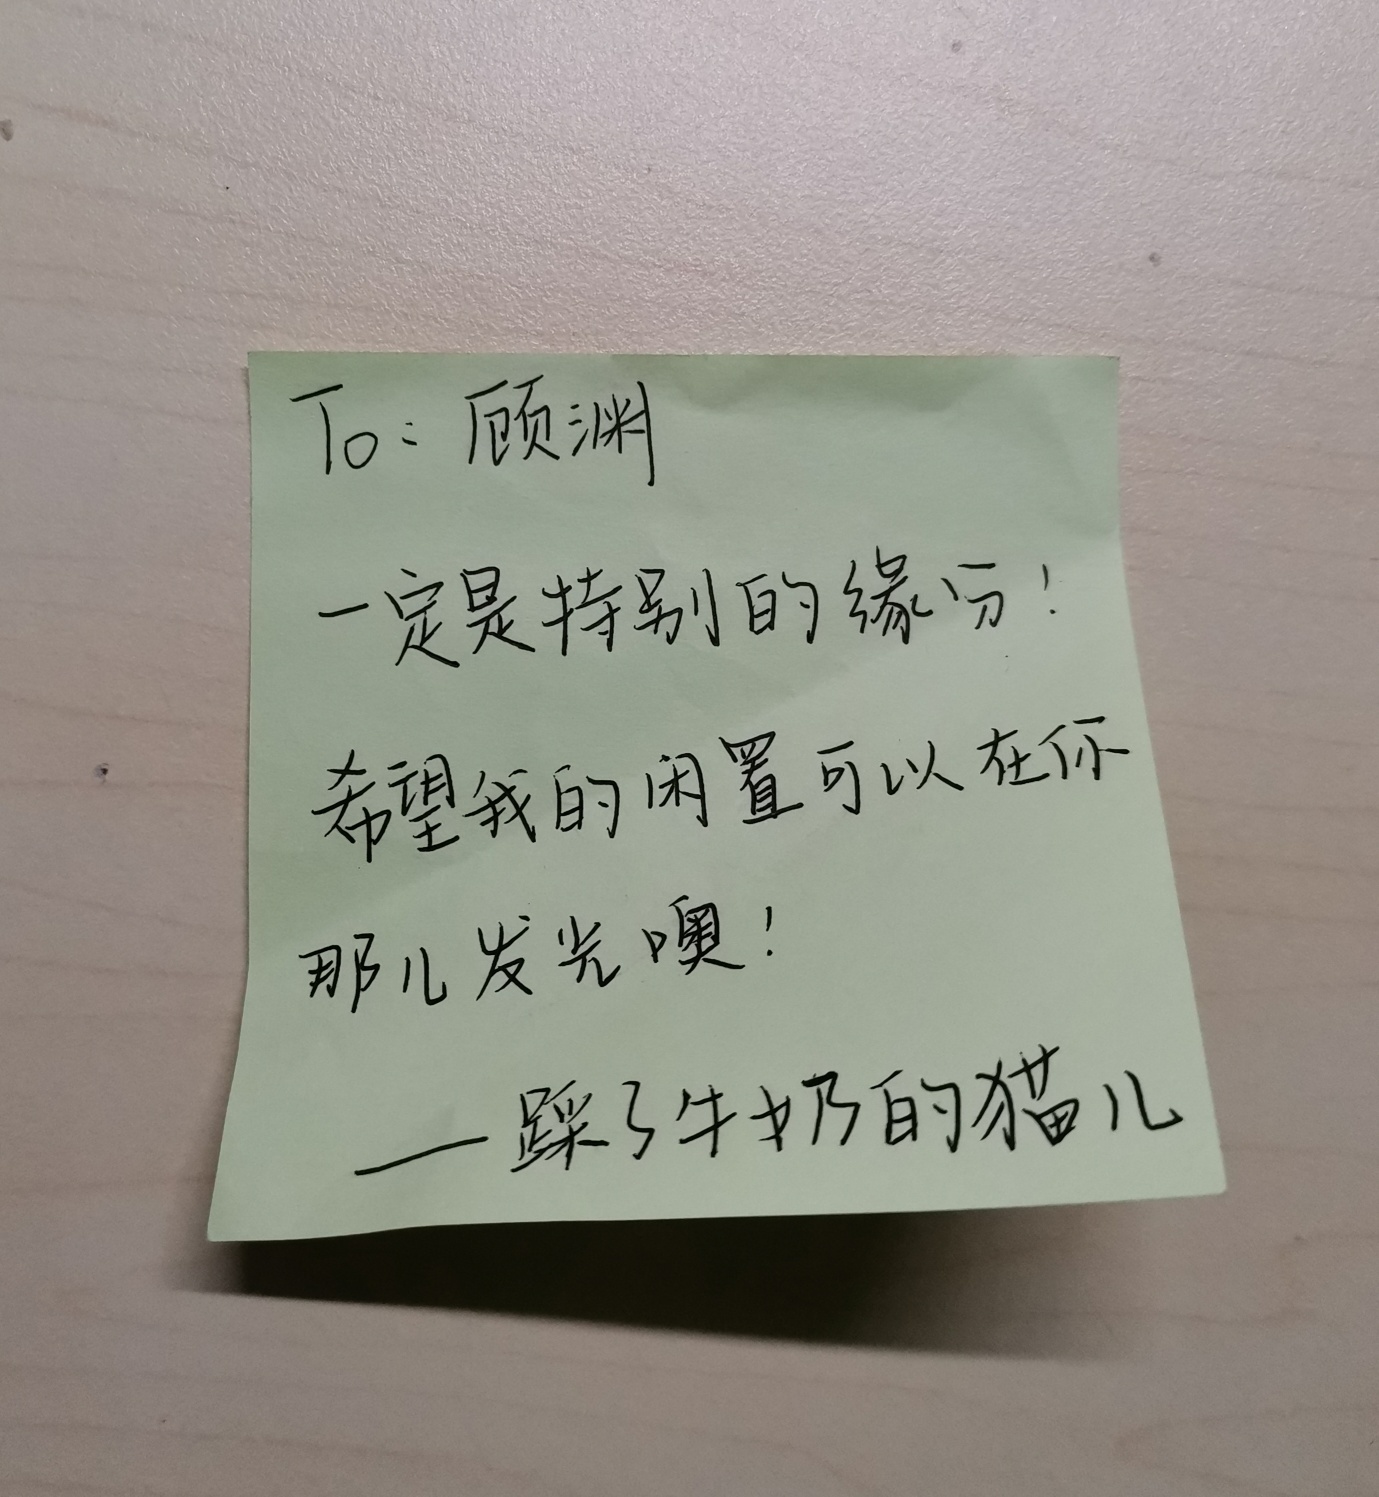 To: 顾渊
一定是特别的缘分！
希望我的闲置可以在你
那儿发光噢！
——踩了牛奶的猫儿